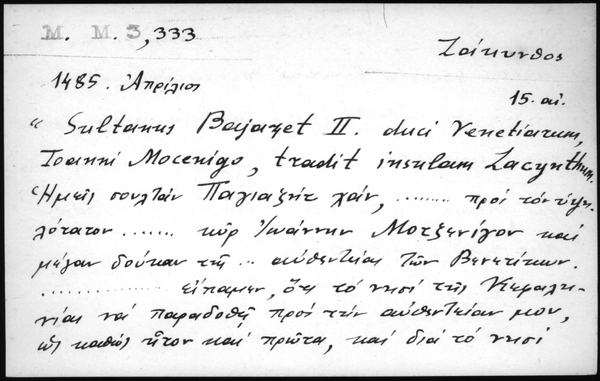 M. M. 3,333
Ζάκυνθος
1485. Ἀπρίλιος
15. αἰ.
“ Sultanus Bajazet II. duci Venetiarum,
Ioanni Mocenigo, tradit insulam Zacynthum.
Ἡμεῖς σουλτάν Παγιαζήτ χάν, ......... πρός τόν ὑψη-
λότατον ....... κύρ Ἰωάννην Μοτζενίγον καί
μέγαν δούκαν τῆς .. αὐθεντείας τῶν Βενετίκων.
.............. εἴπαμεν, ὅτι τό νησί τῆς Κεφαλη-
νίας νά παραδοθῇ πρός τήν αὐθεντείαν μου,
ὡς καθώς ἦτον καί πρῶτα, καί διά τό νησί